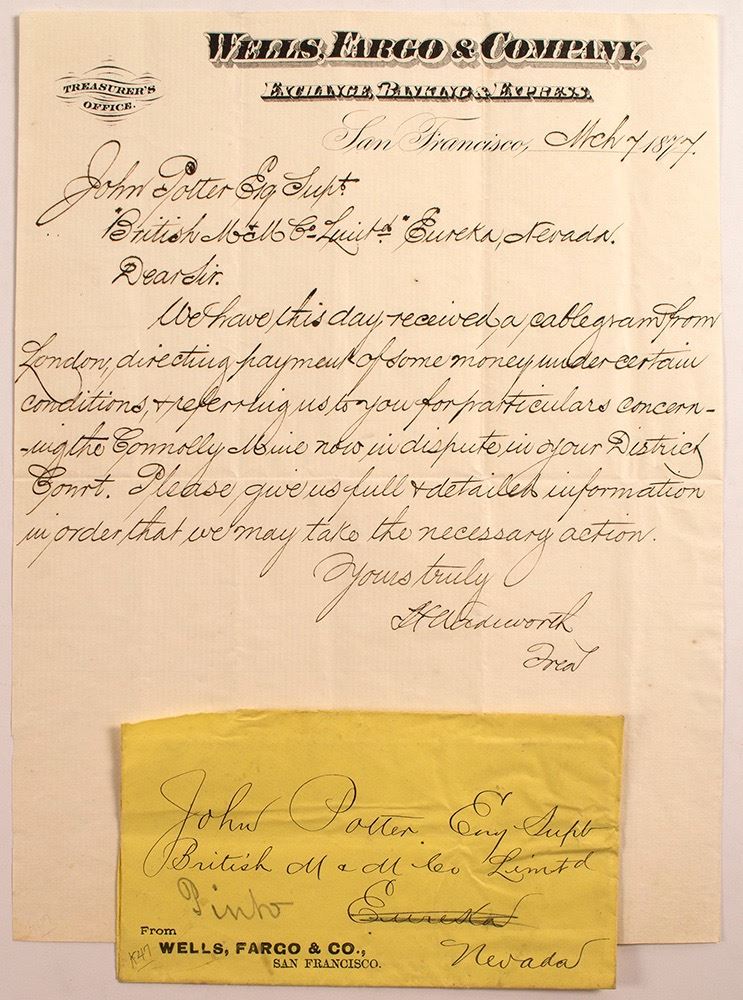 WELLS, FARGO & COMPANY,
EXCHANGE, BANKING & EXPRESS.
TREASURER'S
OFFICE.
San Francisco, Mch 7 1877.
John Potter Esq Supt.
"British M & M Co. Limtd." Eureka, Nevada.
Dear Sir.
We have this day received a cablegram from
London, directing payment of some money under certain
conditions, & referring us to you for particulars concern-
-ing the Connolly Mine now in dispute in your District
Court. Please give us full & detailed information
in order that we may take the necessary action.
Yours truly
H Wadsworth
Trea
John Potter Esq Supt
British M & M Co Limtd
Pinto
Eureka
Nevada
From
WELLS, FARGO & CO.,
SAN FRANCISCO.